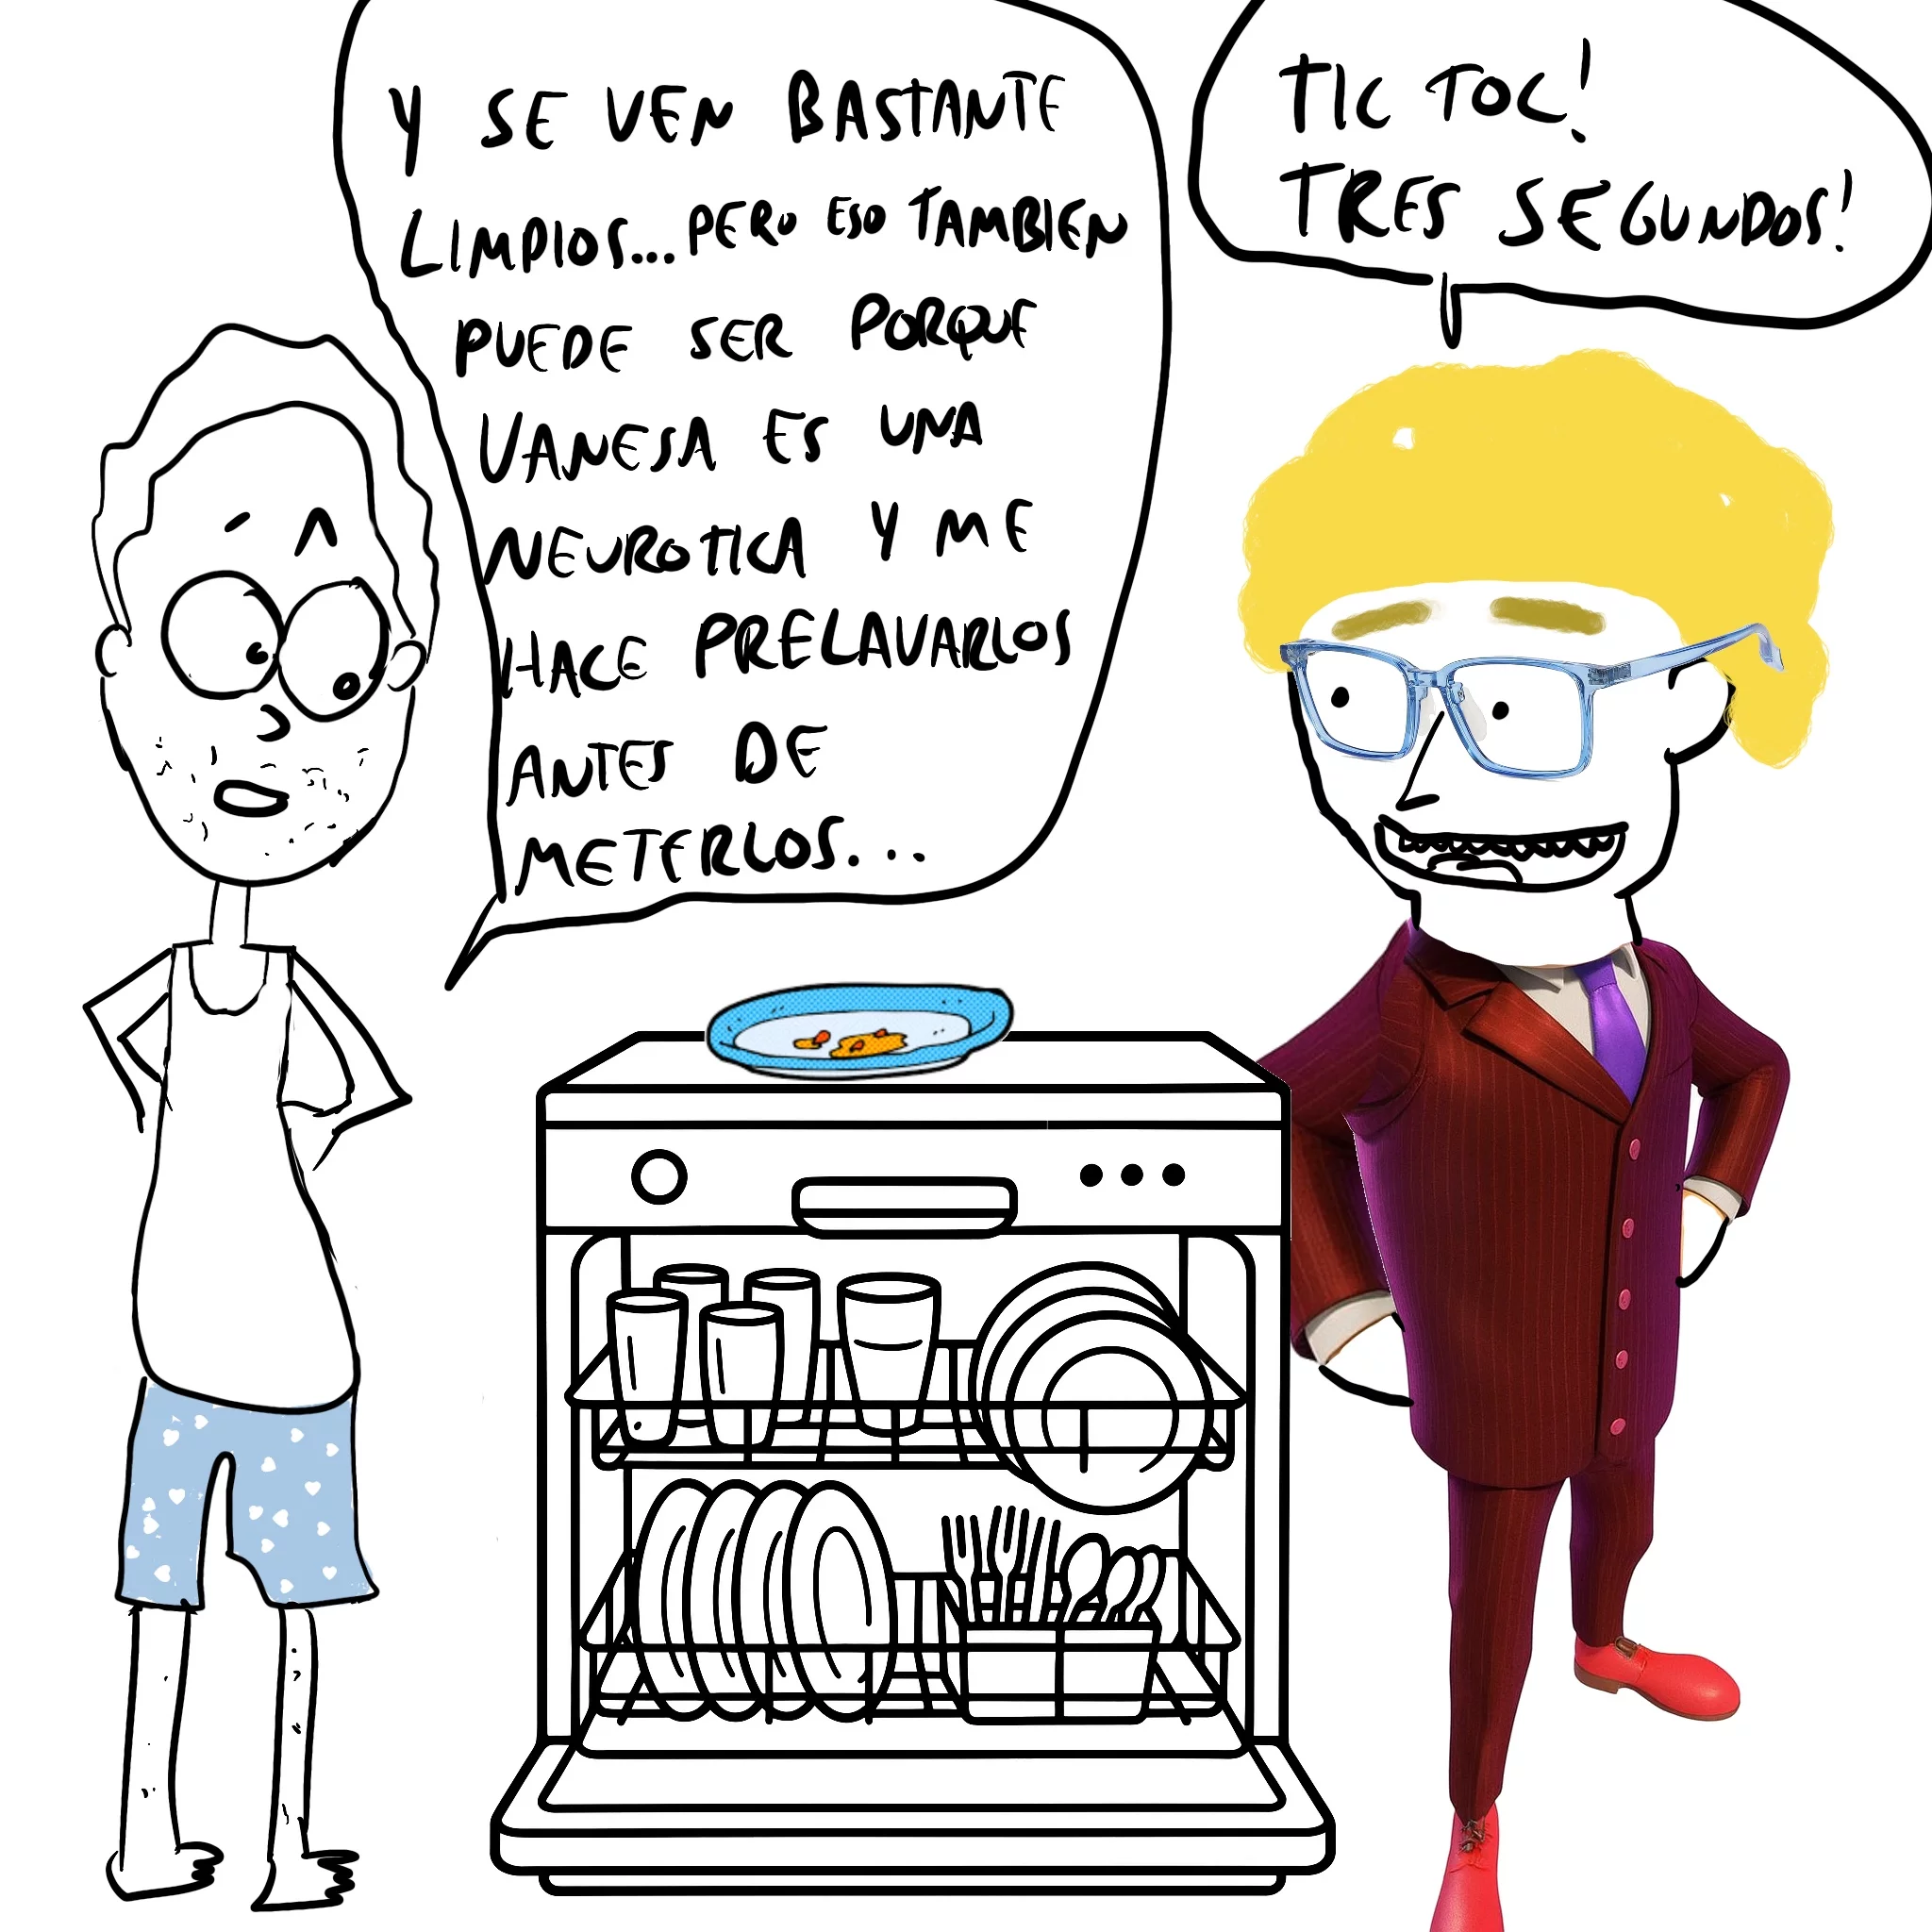 Y SE VEN BASTANTE
LIMPIOS... PERO ESO TAMBIEN
PUEDE SER PORQUE
VANESA ES UNA
NEUROTICA Y ME
HACE PRELAVARLOS
ANTES DE
METERLOS...
TIC TOC!
TRES SEGUNDOS!